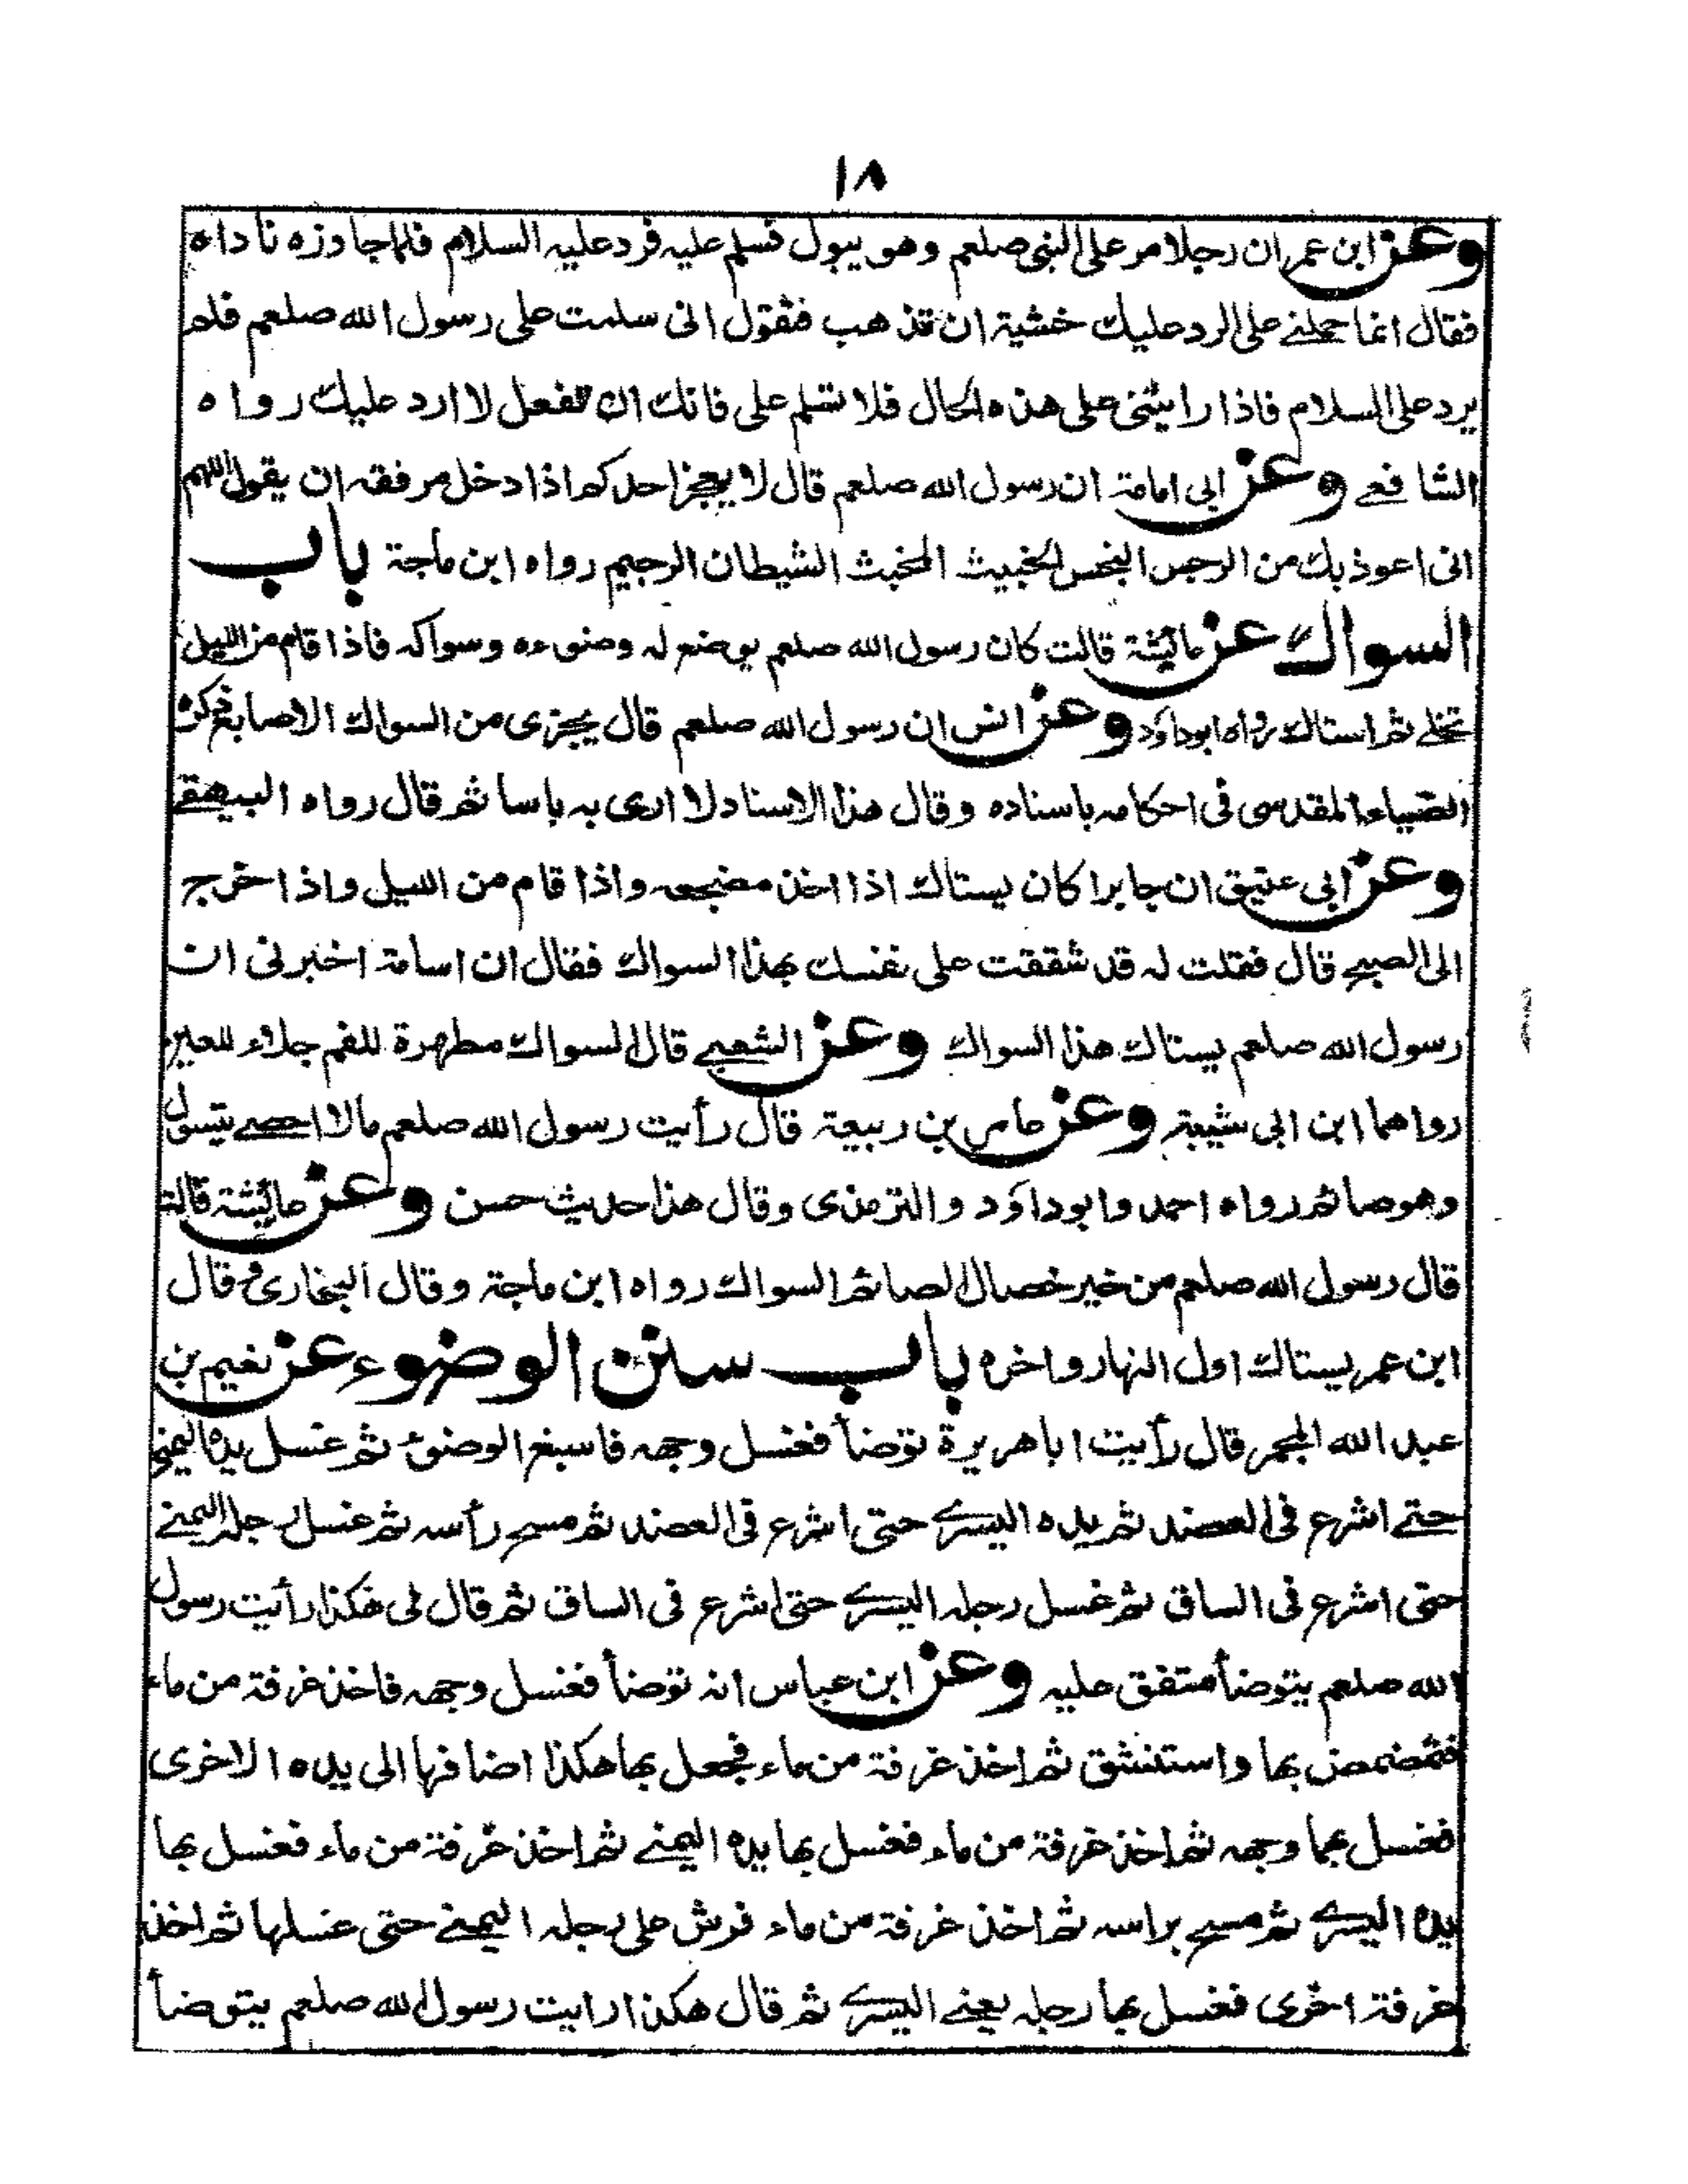 ١٨
وعن ابن عمر ان رجلا مر على النبي صلعم وهو يبول فسلم عليه فرد عليه السلام فلما جاوزه ناداه
فقال انما حملنے على الرد عليك خشية ان تذهب فتقول انى سلمت على رسول الله صلعم فلم
يرد على السلام فاذا رايتنى على هذه الحال فلا تسلم على فانك ان تفعل لا ارد عليك رواه
الشافعے وعن ابى امامة ان رسول الله صلعم قال لا يعجز احدكم اذا دخل مرفقه ان يقول اللهم
انى اعوذ بك من الرجس النجس الخبيث المخبث الشيطان الرجيم رواه ابن ماجة باب
السواك عن عائيشة قالت كان رسول الله صلعم يوضع له وضوءه وسواكه فاذا قام من الليل
تخلے ثم استاك رواه ابوداؤد وعن انس ان رسول الله صلعم قال يجزى من السواك الاصابع ذكره
الضياء المقدسى فى احكامه باسناده وقال هذا الاسناد لا ارى به باسا ثم قال رواه البيهقے
وعن ابى عتيق ان جابرا كان يستاك اذا اخذ مضجعه واذا قام من الليل واذا خرج
الى الصبح قال فقلت له قد شققت على نفسك بهذا السواك فقال ان اسامة اخبرنى ان
رسول الله صلعم يستاك هذا السواك وعن الشعبے قال السواك مطهرة للفم جلاء للعين
رواهما ابن ابى شيبة وعن عامر بن ربيعة قال رأيت رسول الله صلعم مالا احصے يتسوك
وهو صائم رواه احمد وابوداؤد والترمذى وقال هذا حديث حسن وعن عائيشة قالت
قال رسول الله صلعم من خير خصال الصائم السواك رواه ابن ماجة وقال البخارى وقال
ابن عمر يستاك اول النهار واخره باب سنن الوضوء عن نعيم بن
عبد الله المجمر قال رأيت ابا هريرة توضأ فغسل وجهه فاسبغ الوضوء ثم غسل يده اليمنى
حتے اشرع فى العضد ثم يده اليسرے حتى اشرع فى العضد ثم مسح رأسه ثم غسل رجله اليمنے
حتى اشرع فى الساق ثم غسل رجله اليسرے حتى اشرع فى الساق ثم قال لى هكذا رأيت رسول
الله صلعم يتوضأ متفق عليه وعن ابن عباس انه توضأ فغسل وجهه فاخذ غرفة من ماء
فتمضمض بها واستنشق ثم اخذ غرفة من ماء فجعل بها هكذا اضافها الى يده الاخرى
فغسل بهما وجهه ثم اخذ غرفة من ماء فغسل بها يده اليمنے ثم اخذ غرفة من ماء فغسل بها
يده اليسرے ثم مسح براسه ثم اخذ غرفة من ماء فرش على رجله اليمنے حتى غسلها ثم اخذ
غرفة اخرى فغسل بها رجله يعنے اليسرے ثم قال هكذا رايت رسول الله صلعم يتوضأ